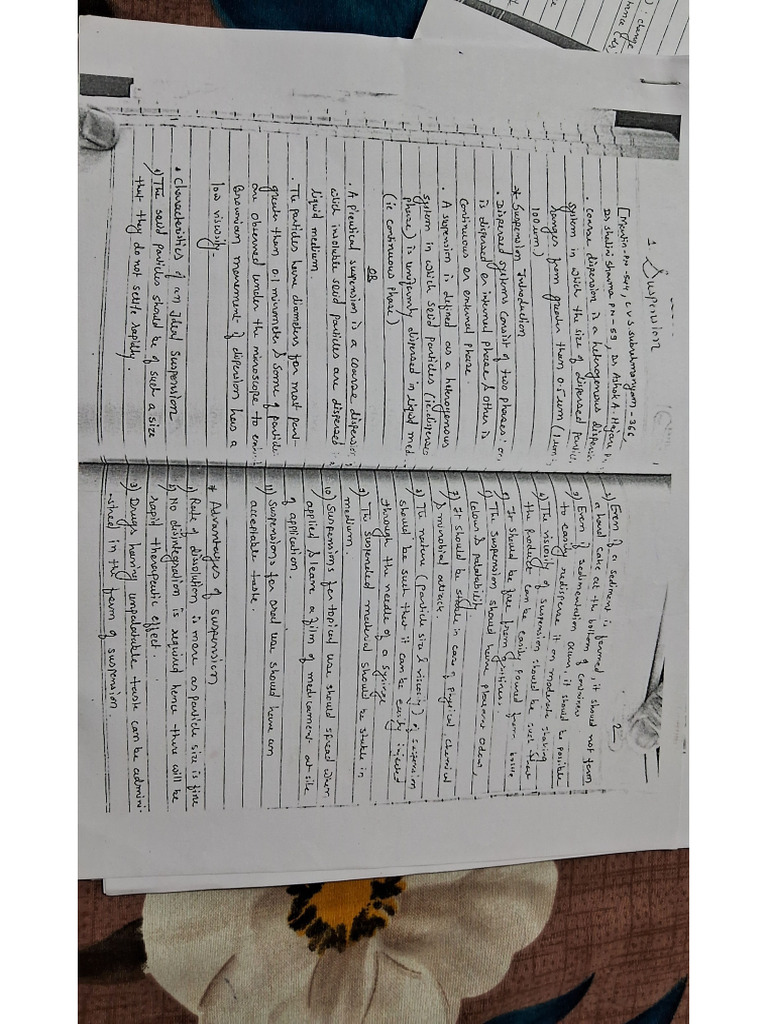 1
Suspension
[Martin-PN-544, C.V.S subrahmanyam-366,
Dr Shalini Sharma PN-59, Dr. Ashok A. Hajare
. coarse dispersion is a heterogenous dispersion
system in which the size of dispersed
ranges from greater than 0.5 um (1um
100 um.)
* Suspension Introduction
. Dispersed systems consist of two phases: one
is dispersed or internal phase & other is
continuous or external phase.
. A suspension is defined as a heterogenous
system in which solid particles (i.e. dispersed
phase) is uniformly dispersed in liquid
(ie continuous phase)
OR
. A Practical suspension is a coarse dispersion
which insoluble solid particles are dispersed
liquid medium
. The particles have diameters for most part
greater than 0.1 micrometer & some of
are observed under the microscope to
Brownian movement if dispersion has a
low viscosity.
* Characteristics of an Ideal Suspension
1) The solid particles should be of such a size
that they do not settle rapidly.
2
Even if a sediment is formed, it should not form
a hard cake at the bottom of container.
Even if sedimentation occurs, it should be possible
to easily redisperse it on moderate shaking
4) The viscosity of suspension should be such that
the product can be easily poured from
It should be free from grittiness.
The suspension should have pleasant odour,
colour & palatability.
7) It should be stable in case of physical, chemical
& microbial attack.
8) Its nature (particle size & viscosity) of suspension
should be such that it can be easily injected
through the needle of a syringe
9) The suspended material should be stable in
medium.
10) Suspensions for topical use should spread when
applied & leave a film of medicament at site
of application.
11) Suspensions for oral use should have an
acceptable taste.
* Advantages of suspension
1) Rate of dissolution is more as particle size is fine
2) No disintegration is required hence there will be
rapid therapeutic effect.
3) Drugs having unpalatable taste can be admini
-stred in the form of suspension.
: change